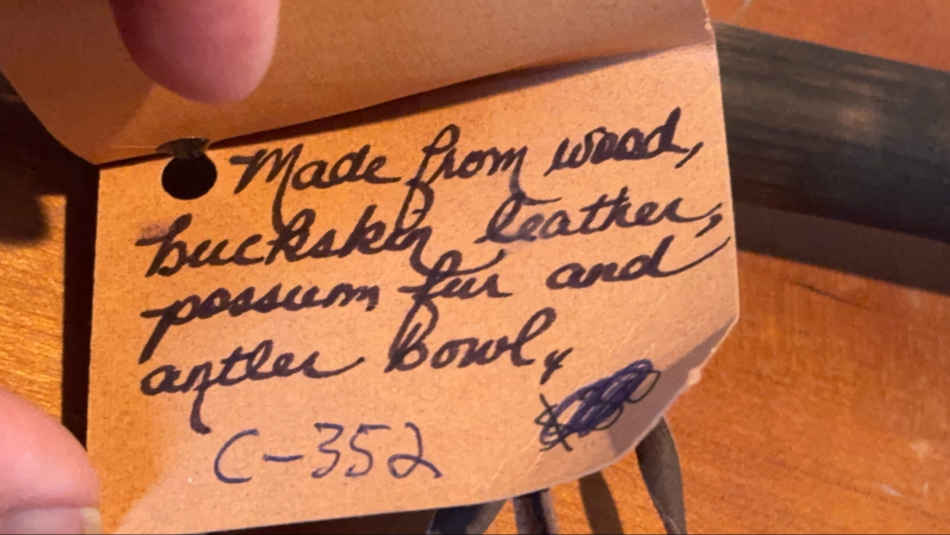 Made from wood,
buckskin leather,
possum fur and
antler bowl,
C-352